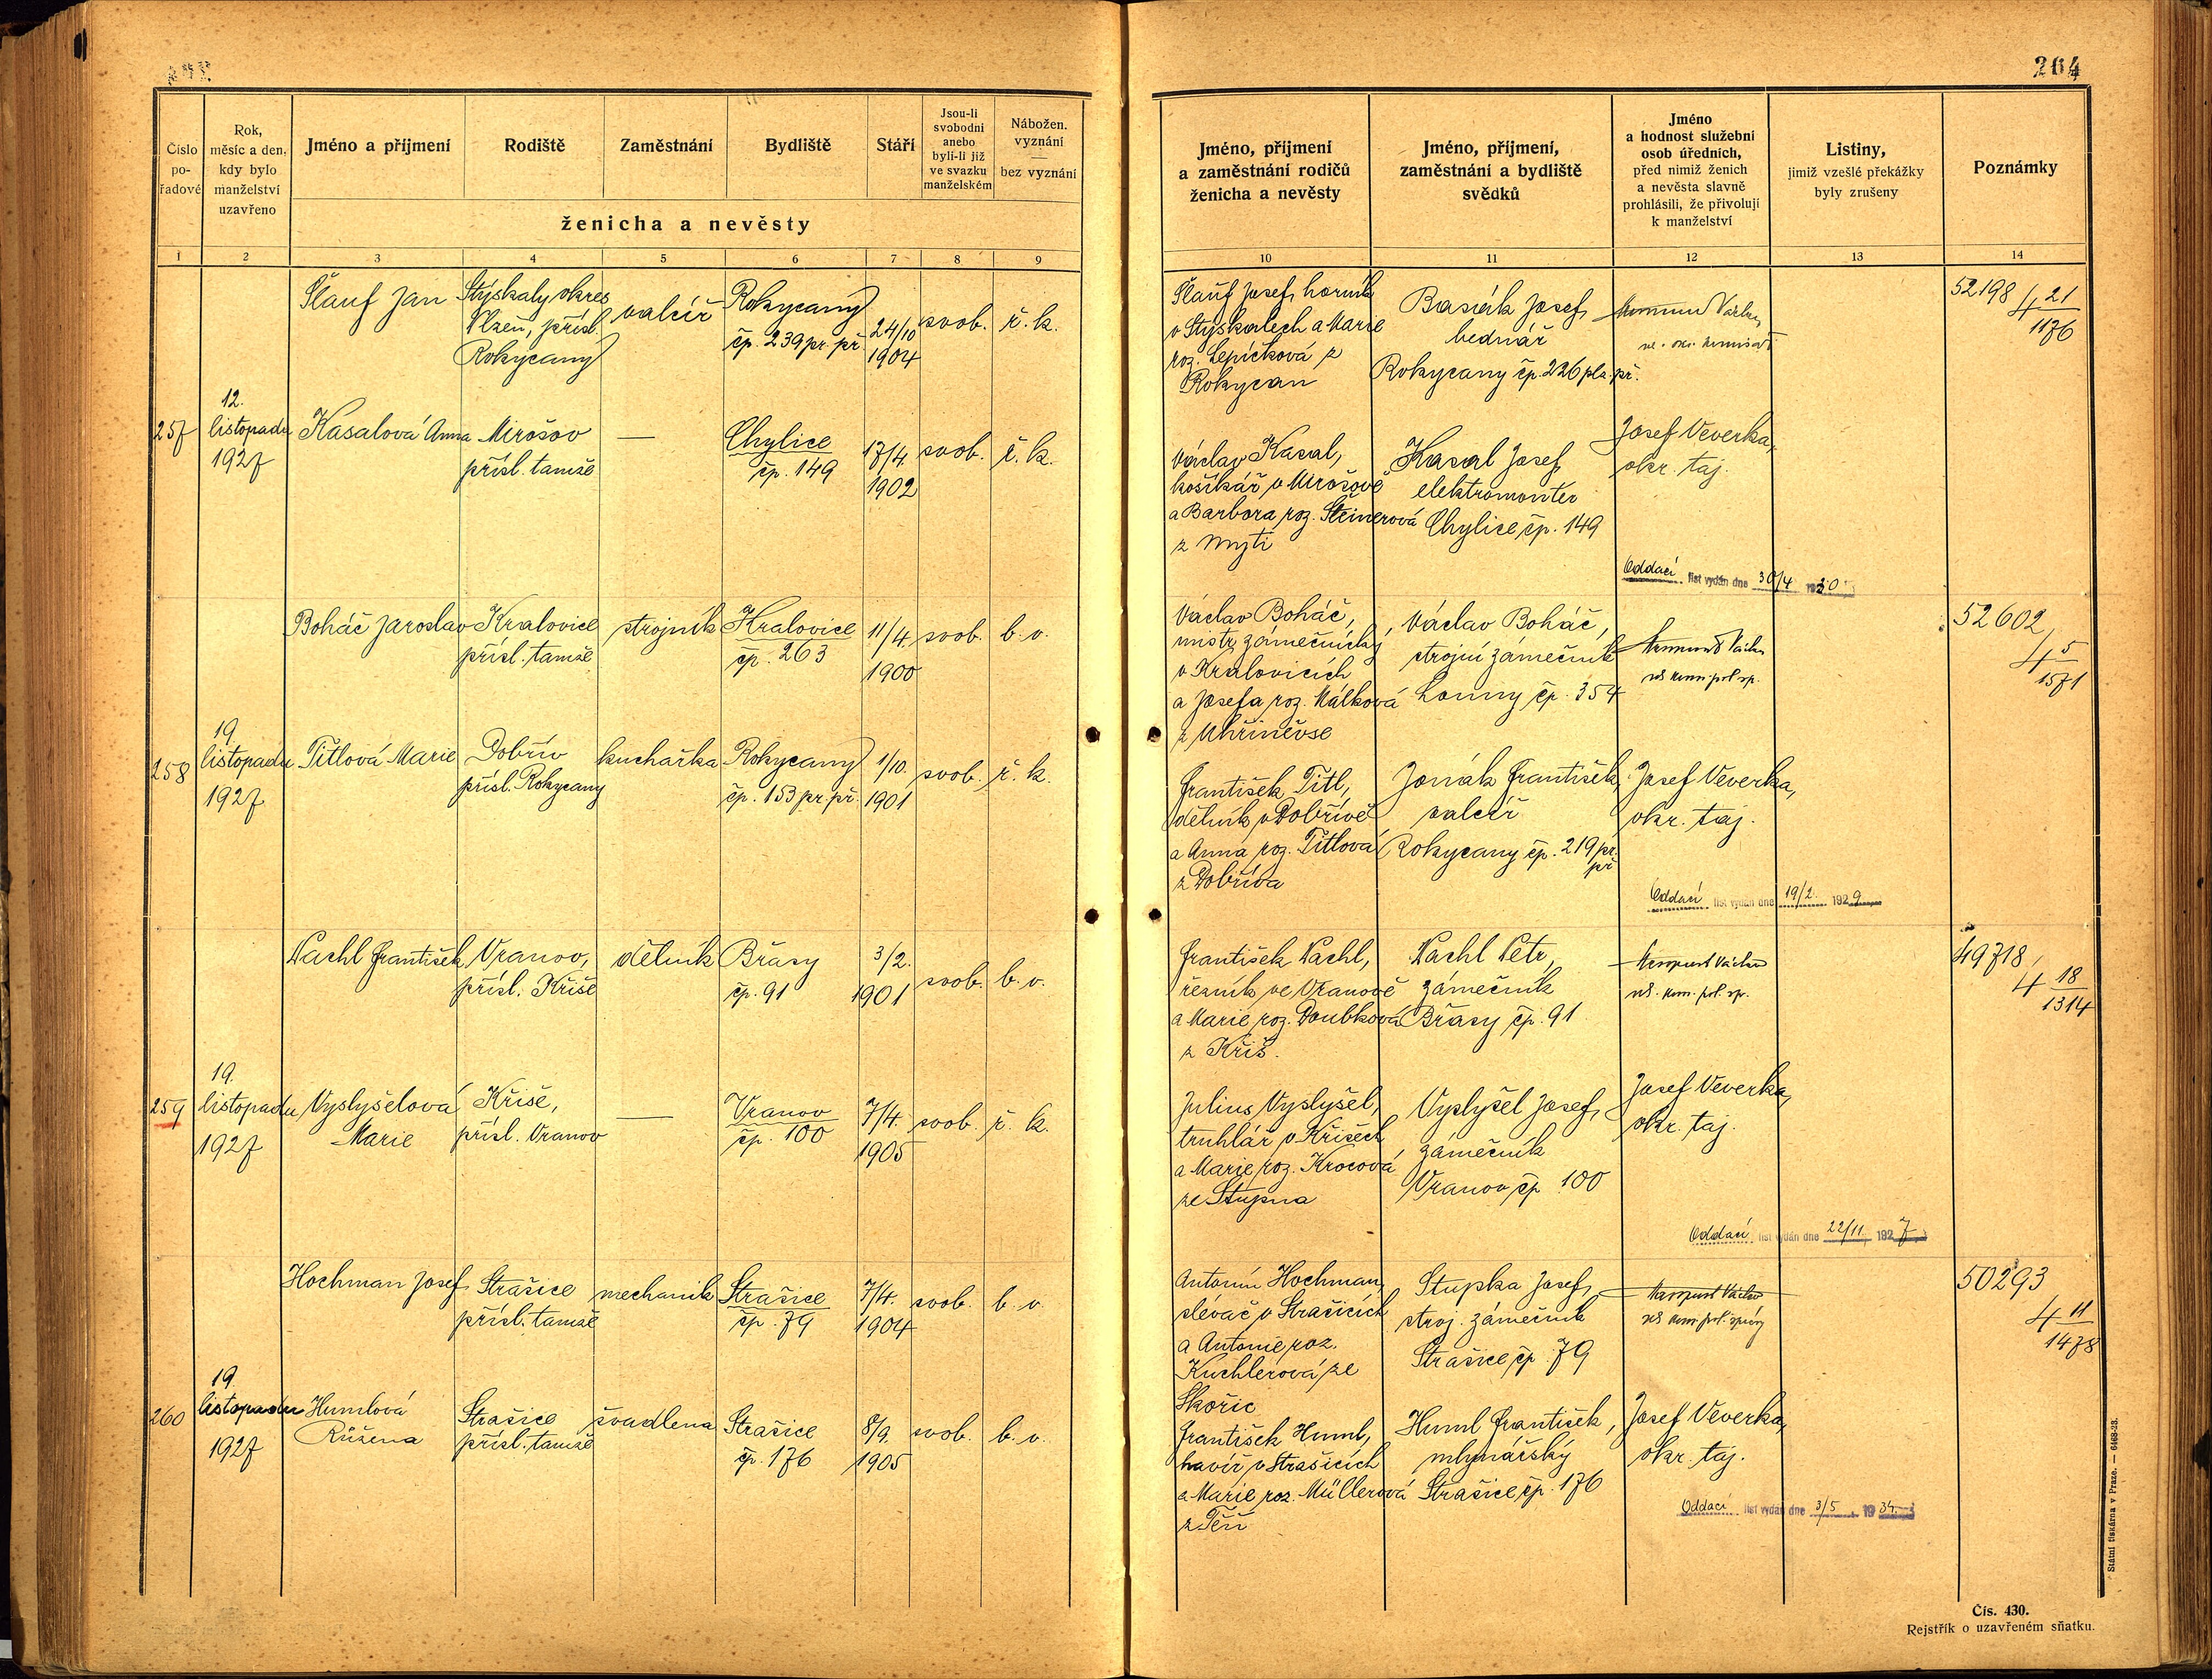 264
Číslo pořadové
Rok, měsíc a den, kdy bylo manželství uzavřeno
Jméno a příjmení
Rodiště
Zaměstnání
Bydliště
Stáří
Jsou-li svobodni anebo byli-li již ve svazku manželském
Nábožen. vyznání — bez vyznání
ženicha a nevěsty
Jméno, příjmení a zaměstnání rodičů ženicha a nevěsty
Jméno, příjmení, zaměstnání a bydliště svědků
Jméno a hodnost služební osob úředních, před nimiž ženich a nevěsta slavně prohlásili, že přivolují k manželství
Listiny, jimiž vzešlé překážky byly zrušeny
Poznámky
1 2 3 4 5 6 7 8 9 10 11 12 13 14
257
12.
listopadu
1927
Šlauf Jan
Stýskaly okres
Plzeň, přísl.
Rokycany
valcíř
Rokycany
čp. 239 pr. př.
24/10
1904
svob.
ř. k.
Šlauf Josef, horník
v Stýskalech a Marie
roz. Lepičková z
Rokycan
Basák Josef,
bednář
Rokycany čp. 226 plz. př.
52198
4 21/1176
Kasalová Anna
Mirošov
přísl. tamže
—
Chylice
čp. 149
17/4.
1902
svob.
ř. k.
Václav Kasal,
košíkář v Mirošově
a Barbora roz. Šteinerová
z Mýti
Kasal Josef,
elektromontér
Chylice čp. 149
Josef Veverka,
okr. taj.
Oddací list vydán dne 30/4 1930
258
19.
listopadu
1927
Boháč Jaroslav
Kralovice
přísl. tamže
strojník
Kralovice
čp. 263
11/4.
1900
svob.
b. v.
Václav Boháč,
mistr zámečnický
v Kralovicích
a Josefa roz. Málková
z Uhříněvse
Václav Boháč,
strojní zámečník
Louny čp. 354
52602
4 5/1571
Titlová Marie
Dobřív
přísl. Rokycany
kuchařka
Rokycany
čp. 153 pr. př.
1/10.
1901
svob.
ř. k.
František Titl,
dělník v Dobřívě
a Anna roz. Titlová
z Dobříva
Jonák František,
valcíř
Rokycany čp. 219 pr.
př.
Josef Veverka,
okr. taj.
Oddací list vydán dne 19/2. 1929
259
19.
listopadu
1927
Nachl František
Vranov,
přísl. Kříše
dělník
Břasy
čp. 91
3/2.
1901
svob.
b. v.
František Nachl,
řezník ve Vranově
a Marie roz. Doubková
z Kříš.
Nachl Petr,
zámečník
Břasy čp. 91
49718,
4 18/1314
Vyslyšelová
Marie
Kříše,
přísl. Vranov
—
Vranov
čp. 100
7/4.
1905
svob.
ř. k.
Julius Vyslyšel,
truhlář v Kříšech
a Marie roz. Krocová
ze Stupna
Vyslyšel Josef,
zámečník
Vranov čp. 100
Josef Veverka,
okr. taj.
Oddací list vydán dne 22/11. 1927
260
19.
listopadu
1927
Hochman Josef
Strašice
přísl. tamže
mechanik
Strašice
čp. 79
7/4.
1904
svob.
b. v.
Antonín Hochman,
slévač v Strašicích
a Antonie roz.
Küchlerová ze
Skořic
Stupka Josef,
stroj. zámečník
Strašice čp. 79
50293
4 11/1478
Humlová
Růžena
Strašice
přísl. tamže
švadlena
Strašice
čp. 176
8/9.
1905
svob.
b. v.
František Huml,
havíř v Strašicích
a Marie roz. Müllerová
z Těň
Huml František,
mlynářský
Strašice čp. 176
Josef Veverka,
okr. taj.
Oddací list vydán dne 3/5. 1934
Státní tiskárna v Praze. — 6468-23.
Čís. 430.
Rejstřík o uzavřeném sňatku.